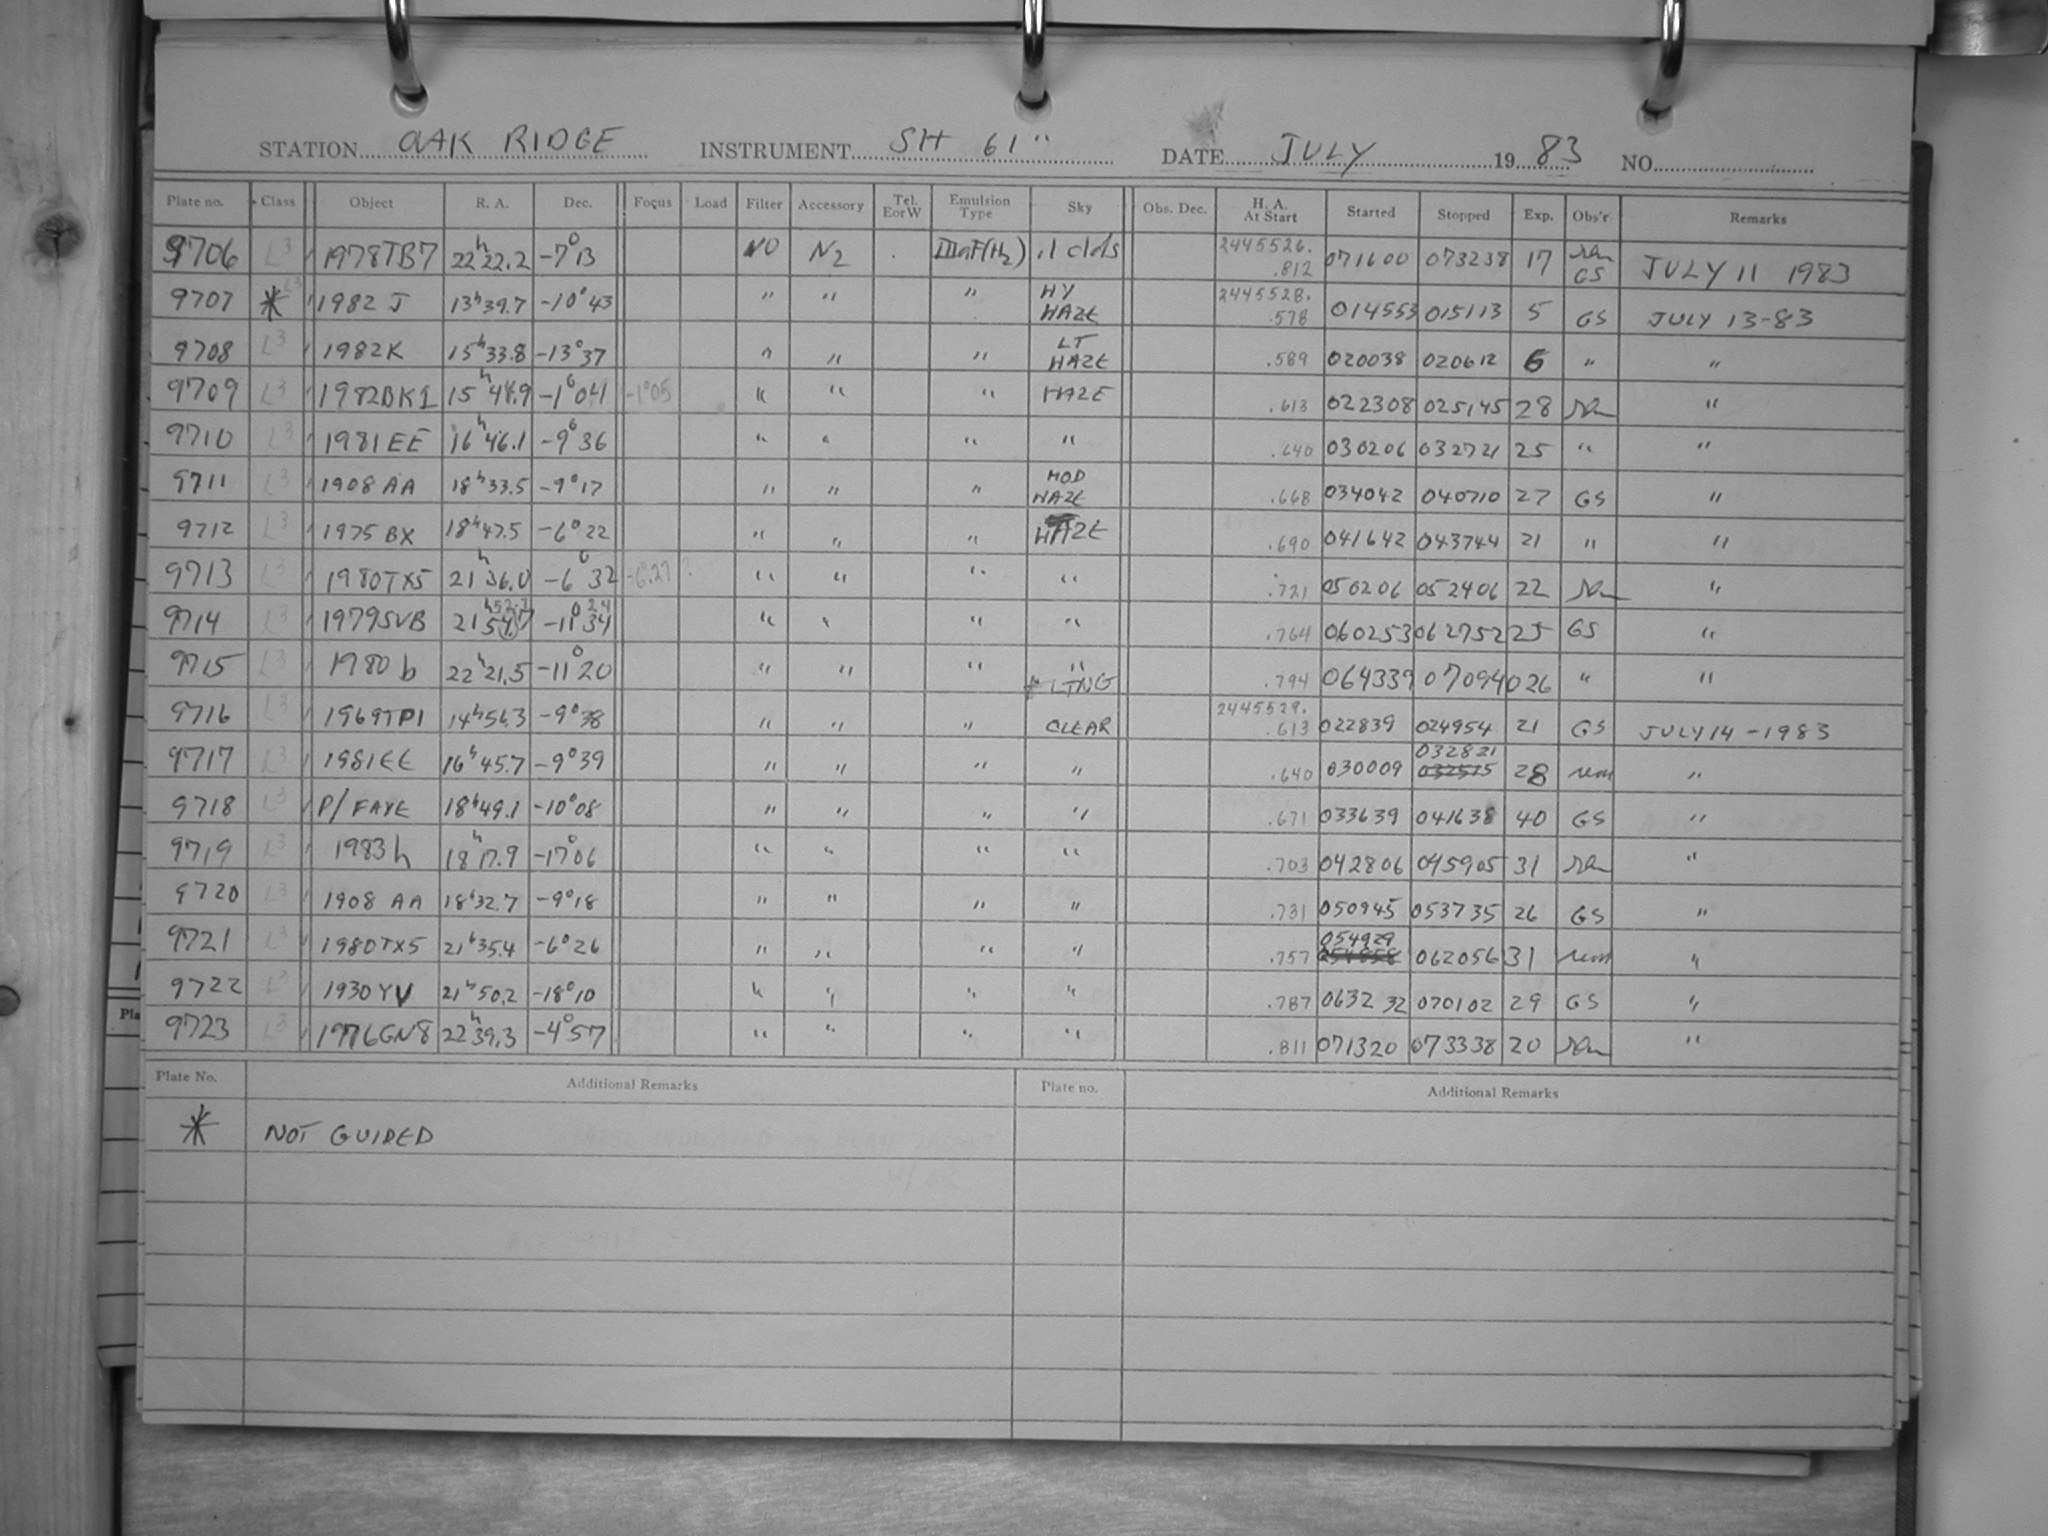 STATION OAK RIDGE INSTRUMENT SH 61" DATE JULY 19 83 NO.
Plate no. Class Object R. A. Dec. Focus Load Filter Accessory Tel. EorW Emulsion Type Sky Obs. Dec. H. A. At Start Started Stopped Exp. Obs'r Remarks
9706 L3 1978TB7 22h22.2 -7°13 NO N2 IIIaF(H2) .1 clds 2445526. .812 071600 073238 17 GS JULY 11 1983
9707 * L3 1982 J 13h39.7 -10°43 " " " HY HAZE 2445528. .578 014553 015113 5 GS JULY 13-83
9708 L3 1982K 15h33.8 -13°37 " " " LT HAZE .589 020038 020612 6 " "
9709 L3 1982BK1 15h48.9 -1°04 -1°05 " " " HAZE .613 022308 025145 28 "
9710 L3 1981EE 16h46.1 -9°36 " " " " .640 030206 032721 25 " "
9711 L3 1908 AA 18h33.5 -9°17 " " " MOD HAZE .668 034042 040710 27 GS "
9712 L3 1975 BX 18h47.5 -6°22 " " " HAZE .690 041642 043744 21 " "
9713 L3 1980TX5 21h36.0 -6°32 -6.27? " " " " .721 050206 052406 22 "
9714 L3 1979SVB 21h -11° 34 24 " " " " .764 060253 062752 25 GS "
9715 L3 1980 b 22h21.5 -11°20 " " " " LTNG .794 064339 070940 26 " "
9716 L3 1969TP1 14h56.3 -9°38 " " " CLEAR 2445529. .613 022839 024954 21 GS JULY 14-1983
9717 L3 1981EE 16h45.7 -9°39 " " " " .640 030009 032821 28 "
9718 L3 P/FAYE 18h49.1 -10°08 " " " " .671 033639 041638 40 GS "
9719 L3 1983h 18h17.9 -17°06 " " " " .703 042806 045905 31 "
9720 L3 1908 AA 18h32.7 -9°18 " " " " .731 050945 053735 26 GS "
9721 L3 1980TX5 21h35.4 -6°26 " " " " .757 054929 062056 31 "
9722 L3 1930YV 21h50.2 -18°10 " " " " .787 063232 070102 29 GS "
9723 L3 1976GN8 22h39.3 -4°57 " " " " .811 071320 073338 20 "
Plate No. Additional Remarks Plate no. Additional Remarks
* NOT GUIDED
Pla